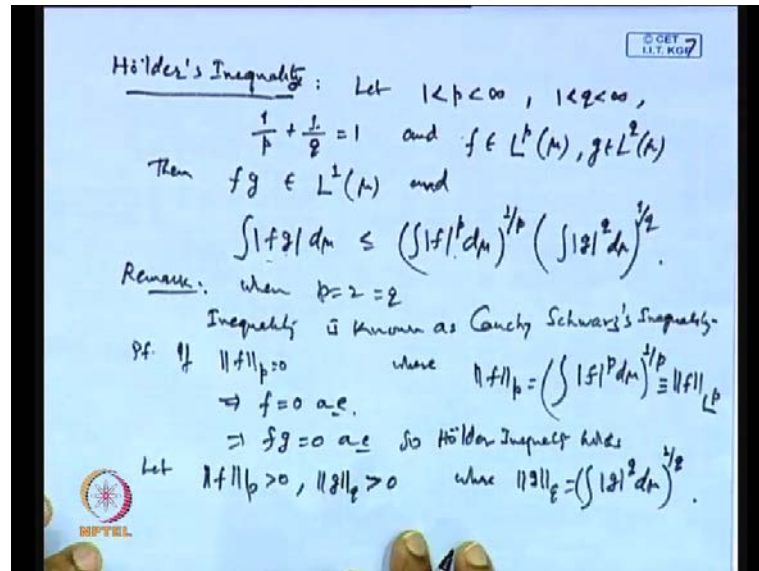 © CET
I.I.T. KGP 7
Hölder's Inequality : Let 1<p<∞ , 1<q<∞ ,
1/p + 1/q = 1 and f ∈ L^p(μ), g ∈ L^q(μ)
Then fg ∈ L^1(μ) and
∫|fg| dμ ≤ (∫|f|^p dμ)^{1/p} (∫|g|^q dμ)^{1/q}.
Remark: when p=2=q
Inequality is known as Cauchy Schwarz's Inequality-
Pf. If ||f||_p=0 where ||f||_p = (∫|f|^p dμ)^{1/p} ≡ ||f||_{L^p}
⇒ f=0 a.e.
⇒ fg=0 a.e So Hölder Inequality holds
Let ||f||_p >0, ||g||_q >0 where ||g||_q = (∫|g|^q dμ)^{1/q}.
NPTEL